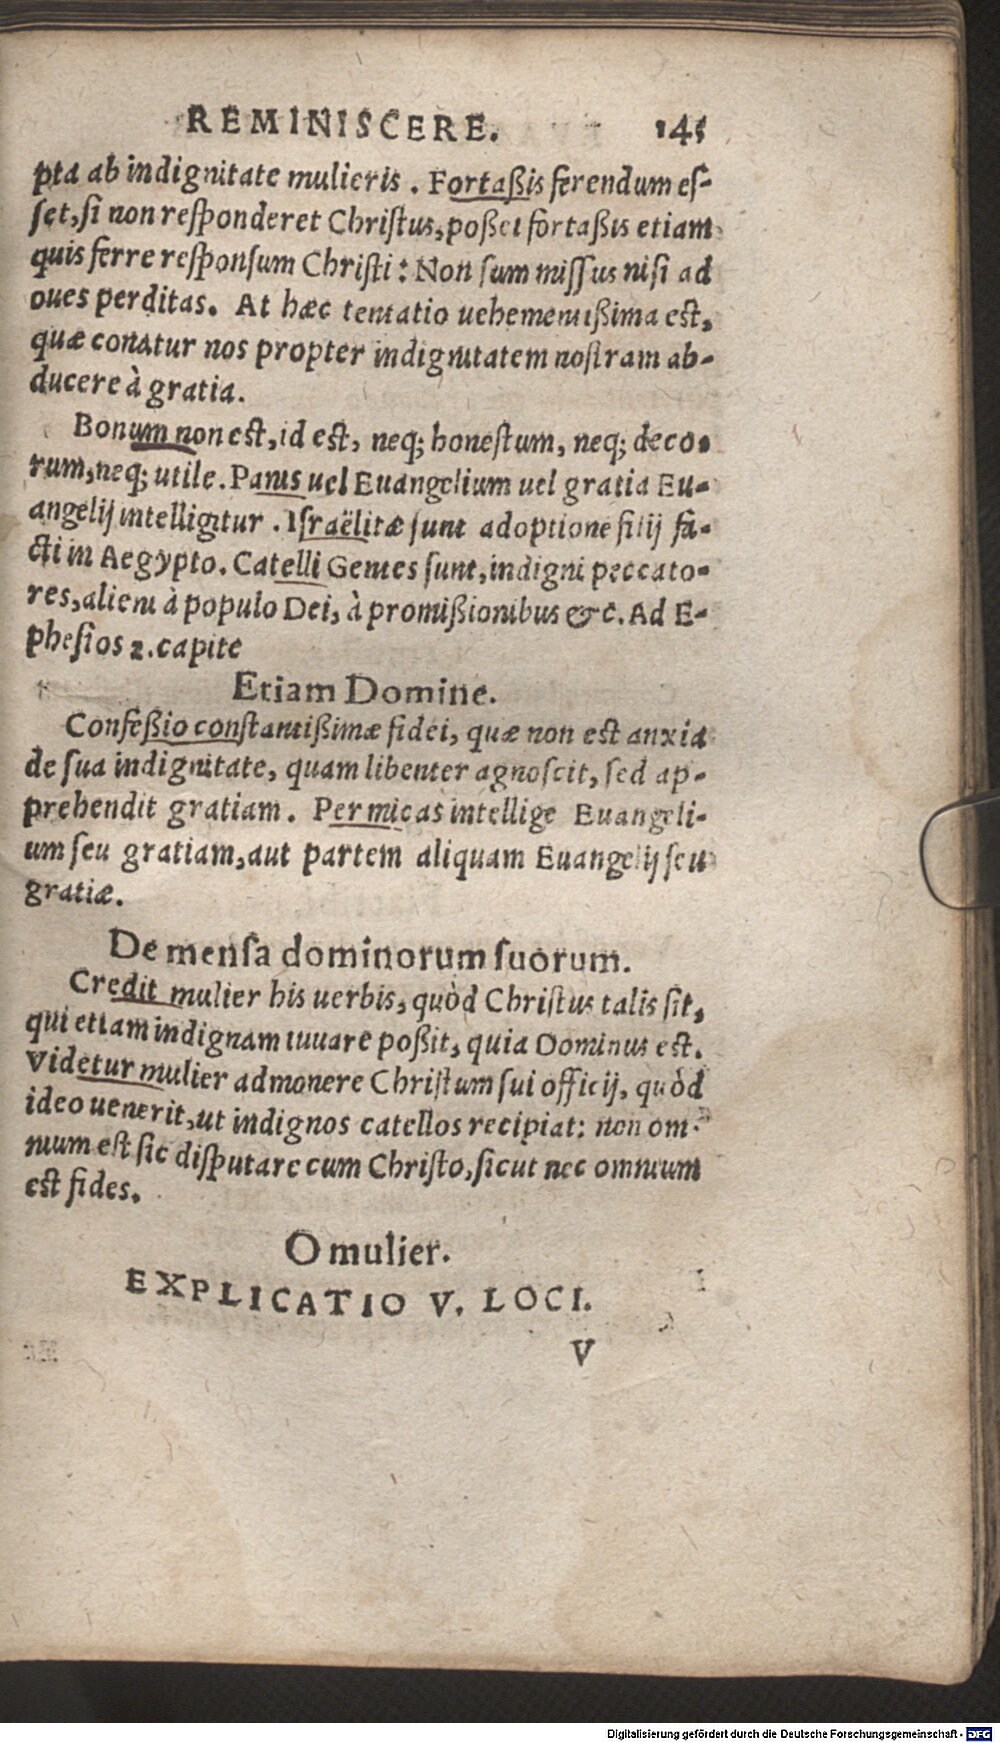 REMINISCERE. 145
pta ab indignitate mulieris. Fortaßis ferendum eſ-
ſet, ſi non reſponderet Chriſtus, poßet fortaßis etiam
quis ferre reſponſum Chriſti: Non ſum miſſus niſi ad
oues perditas. At hæc tentatio uehementißima eſt,
quæ conatur nos propter indignitatem noſtram ab-
ducere à gratia.
Bonum non eſt, id eſt, neq; honeſtum, neq; deco-
rum, neq; utile. Panis uel Euangelium uel gratia Eu-
angelij intelligitur. Iſraëlitæ ſunt adoptione filij fa-
cti in Aegypto. Catelli Gentes ſunt, indigni peccato-
res, alieni à populo Dei, à promißionibus &c. Ad E-
pheſios 2. capite
Etiam Domine.
Confeßio conſtantißimæ fidei, quæ non eſt anxia
de ſua indignitate, quam libenter agnoſcit, ſed ap-
prehendit gratiam. Per micas intellige Euangeli-
um ſeu gratiam, aut partem aliquam Euangelij ſeu
gratiæ.
De menſa dominorum ſuorum.
Credit mulier his uerbis, quòd Chriſtus talis ſit,
qui etiam indignam iuuare poßit, quia Dominus eſt.
Videtur mulier admonere Chriſtum ſui officij, quòd
ideo uenerit, ut indignos catellos recipiat: non om-
nium eſt ſic diſputare cum Chriſto, ſicut nec omnium
eſt fides.
O mulier.
EXPLICATIO V. LOCI.
V
Digitalisierung gefördert durch die Deutsche Forschungsgemeinschaft - DFG